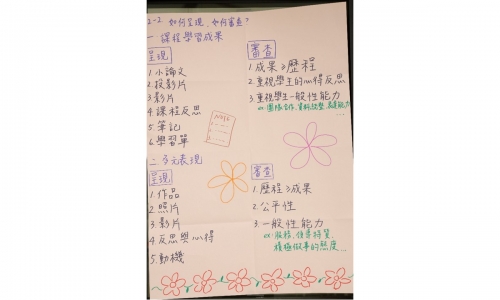 2-2 如何呈現、如何審查?
一 課程學習成果
呈現
1 小論文
2 投影片
3 影片
4 課程反思
5 筆記
6 學習單
審查
1. 成果≥歷程
2. 重視學生的心得反思
3. 重視學生一般性能力
ex 團隊合作、資料統整、表達能力...
二 多元表現
呈現
1 作品
2. 照片
3. 影片
4 反思與心得
5. 動機
審查
1. 歷程≥成果
2. 公平性
3. 一般性能力
ex 服務、領導特質、
積極做事的態度...